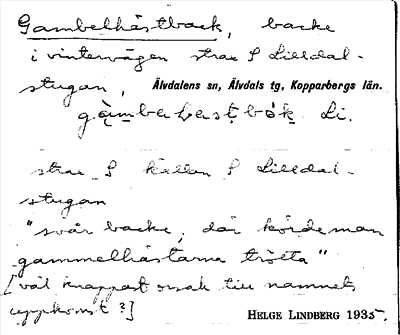 Gambelhästback, backe
i vintervägen strax S Lilldal-
stugan,
Älvdalens sn, Älvdals tg, Kopparbergs län.
Li.
strax S källan S Lilldal-
stugan
"svår backe, där körde man
gammelhästarna trötta"
[väl knappast orsak till namnets
uppkomst?]
HELGE LINDBERG 1935.